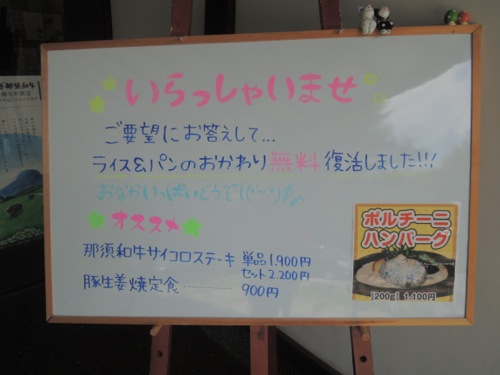 いらっしゃいませ
ご要望にお答えして...
ライス&パンのおかわり無料復活しました!!!
おなかいっぱいどうぞ((^-^)♪
オススメ
那須和牛サイコロステーキ 単品 1.900円
セット 2.200円
豚生姜焼定食………… 900円
ポルチーニ
ハンバーグ
[200g] 1,100円